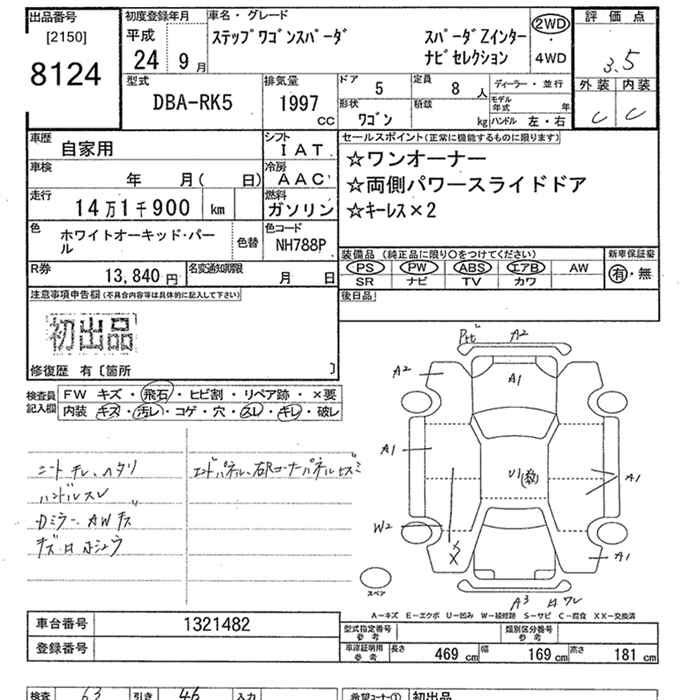 出品番号
[2150]
8124
初度登録年月
平成
24 9月
車名・グレード
ステップワゴンスパーダ
スパーダZインター
ナビセレクション
2WD
・
4WD
評価点
3.5
外装 内装
C C
型式
DBA-RK5
排気量
1997
cc
ドア 5
定員 8人
形状 ワゴン
積載 kg
ディーラー・並行
モデル年式 年
ハンドル 左・右
車歴 自家用
シフト IAT
車検 年 月( 日)
冷房 AAC
走行 14万1千900 km
燃料 ガソリン
色 ホワイトオーキッド・パール
色替
色コード NH788P
R券 13,840円
名変通知期限 月 日
セールスポイント(正常に機能するものに限ります)
☆ワンオーナー
☆両側パワースライドドア
☆キーレス×2
装備品(純正品に限り○をつけてください)
PS PW ABS エアB AW
SR ナビ TV カワ
新車保証書
有・無
後日品
注意事項申告欄(不具合内容等は具体的に記入して下さい)
初出品
修復歴 有〔箇所 〕
検査員記入欄
FW キズ・飛石・ヒビ割・リペア跡・×要
内装 キズ・汚レ・コゲ・穴・スレ・キレ・破レ
シート チレ、ヘタリ
ハンドルスレ
Dミラー、AWキズ
エンドパネル、右Rコーナーパネルヒズミ
A2
A2
A1
A1
U1
A1
W2
A1
A3
スペア
A-キズ E-エクボ U-凹み W-補修跡 S-サビ C-腐食 XX-交換済
車台番号 1321482
登録番号
型式指定番号参考
類別区分番号参考
車庫証明用参考
長さ 469cm
幅 169cm
高さ 181cm
検査 63
引き 46
入力
希望コーナー① 初出品